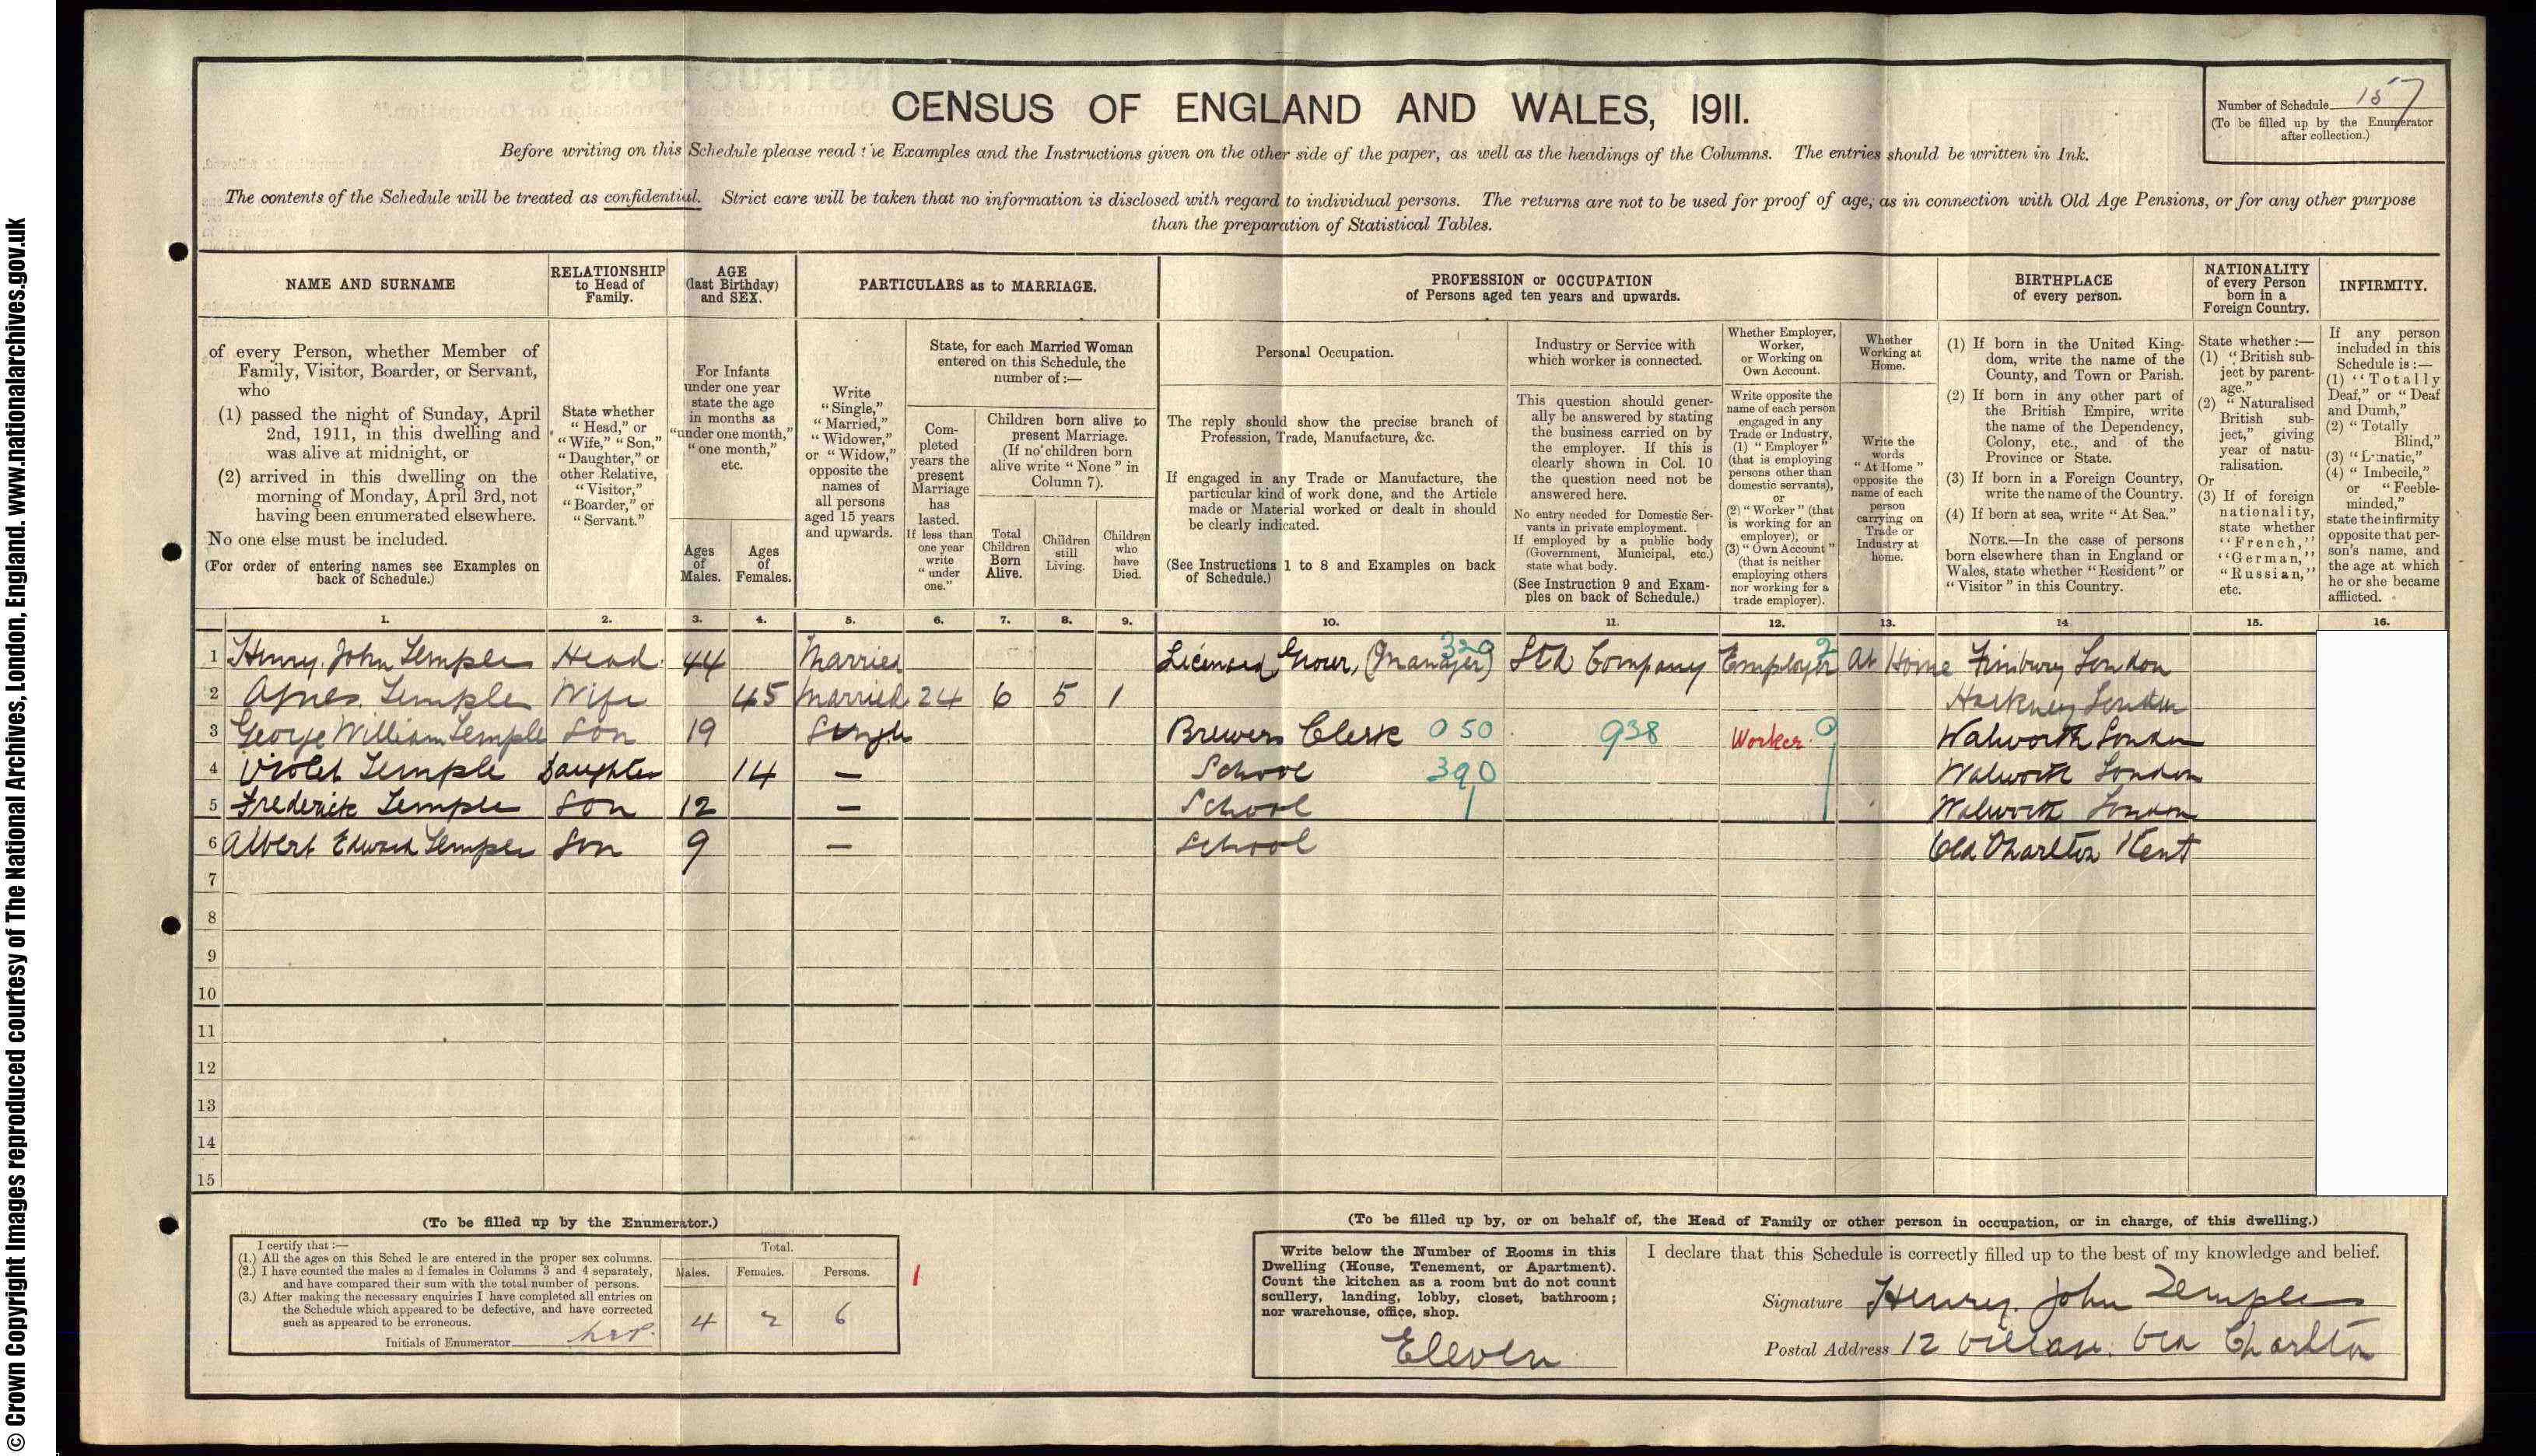 CENSUS OF ENGLAND AND WALES, 1911.
Number of Schedule 157
(To be filled up by the Enumerator
after collection.)
Before writing on this Schedule please read the Examples and the Instructions given on the other side of the paper, as well as the headings of the Columns. The entries should be written in Ink.
The contents of the Schedule will be treated as confidential. Strict care will be taken that no information is disclosed with regard to individual persons. The returns are not to be used for proof of age, as in connection with Old Age Pensions, or for any other purpose
than the preparation of Statistical Tables.
NAME AND SURNAME
of every Person, whether Member of
Family, Visitor, Boarder, or Servant,
who
(1) passed the night of Sunday, April
2nd, 1911, in this dwelling and
was alive at midnight, or
(2) arrived in this dwelling on the
morning of Monday, April 3rd, not
having been enumerated elsewhere.
No one else must be included.
(For order of entering names see Examples on
back of Schedule.)
RELATIONSHIP
to Head of
Family.
State whether
"Head," or
"Wife," "Son,"
"Daughter," or
other Relative,
"Visitor,"
"Boarder," or
"Servant."
AGE
(last Birthday)
and SEX.
For Infants
under one year
state the age
in months as
"under one month,"
"one month,"
etc.
Ages
of
Males.
Ages
of
Females.
PARTICULARS as to MARRIAGE.
Write
"Single,"
"Married,"
"Widower,"
or "Widow,"
opposite the
names of
all persons
aged 15 years
and upwards.
State, for each Married Woman
entered on this Schedule, the
number of:—
Com-
pleted
years the
present
Marriage
has
lasted.
If less than
one year
write
"under
one."
Children born alive to
present Marriage.
(If no children born
alive write "None" in
Column 7).
Total
Children
Born
Alive.
Children
still
Living.
Children
who
have
Died.
PROFESSION or OCCUPATION
of Persons aged ten years and upwards.
Personal Occupation.
The reply should show the precise branch of
Profession, Trade, Manufacture, &c.
If engaged in any Trade or Manufacture, the
particular kind of work done, and the Article
made or Material worked or dealt in should
be clearly indicated.
(See Instructions 1 to 8 and Examples on back
of Schedule.)
Industry or Service with
which worker is connected.
This question should gener-
ally be answered by stating
the business carried on by
the employer. If this is
clearly shown in Col. 10
the question need not be
answered here.
No entry needed for Domestic Ser-
vants in private employment.
If employed by a public body
(Government, Municipal, etc.)
state what body.
(See Instruction 9 and Exam-
ples on back of Schedule.)
Whether Employer,
Worker,
or Working on
Own Account.
Write opposite the
name of each person
engaged in any
Trade or Industry,
(1) "Employer"
(that is employing
persons other than
domestic servants),
or
(2) "Worker" (that
is working for an
employer), or
(3) "Own Account"
(that is neither
employing others
nor working for a
trade employer).
Whether
Working at
Home.
Write the
words
"At Home"
opposite the
name of each
person
carrying on
Trade or
Industry at
home.
BIRTHPLACE
of every person.
(1) If born in the United King-
dom, write the name of the
County, and Town or Parish.
(2) If born in any other part of
the British Empire, write
the name of the Dependency,
Colony, etc., and of the
Province or State.
(3) If born in a Foreign Country,
write the name of the Country.
(4) If born at sea, write "At Sea."
NOTE.—In the case of persons
born elsewhere than in England or
Wales, state whether "Resident" or
"Visitor" in this Country.
NATIONALITY
of every Person
born in a
Foreign Country.
State whether:—
(1) "British sub-
ject by parent-
age."
(2) "Naturalised
British sub-
ject," giving
year of natu-
ralisation.
Or
(3) If of foreign
nationality,
state whether
"French,"
"German,"
"Russian,"
etc.
INFIRMITY.
If any person
included in this
Schedule is:—
(1) "Totally
Deaf," or "Deaf
and Dumb,"
(2) "Totally
Blind,"
(3) "Lunatic,"
(4) "Imbecile,"
or "Feeble-
minded,"
state the infirmity
opposite that per-
son's name, and
the age at which
he or she became
afflicted.
1. 2. 3. 4. 5. 6. 7. 8. 9. 10. 11. 12. 13. 14. 15. 16.
1 Henry John Temple Head 44 Married Licensed Grocer, (Manager) 320 Ltd Company Employer 2 At Home Finsbury London
2 Agnes Temple Wife 45 Married 24 6 5 1 Hackney London
3 George William Temple Son 19 Single Brewers Clerk 050 938 Worker 0 Walworth London
4 Violet Temple Daughter 14 — School 390 Walworth London
5 Frederick Temple Son 12 — School Walworth London
6 Albert Edward Temple Son 9 — School Old Charlton Kent
7
8
9
10
11
12
13
14
15
(To be filled up by the Enumerator.)
I certify that:—
(1.) All the ages on this Sched le are entered in the proper sex columns.
(2.) I have counted the males and females in Columns 3 and 4 separately,
and have compared their sum with the total number of persons.
(3.) After making the necessary enquiries I have completed all entries on
the Schedule which appeared to be defective, and have corrected
such as appeared to be erroneous.
Initials of Enumerator
Total.
Males. Females. Persons.
4 2 6
1
(To be filled up by, or on behalf of, the Head of Family or other person in occupation, or in charge, of this dwelling.)
Write below the Number of Rooms in this
Dwelling (House, Tenement, or Apartment).
Count the kitchen as a room but do not count
scullery, landing, lobby, closet, bathroom;
nor warehouse, office, shop.
Eleven
I declare that this Schedule is correctly filled up to the best of my knowledge and belief.
Signature Henry John Temple
Postal Address 12 Village. Old Charlton
© Crown Copyright Images reproduced courtesy of The National Archives, London, England. www.nationalarchives.gov.uk